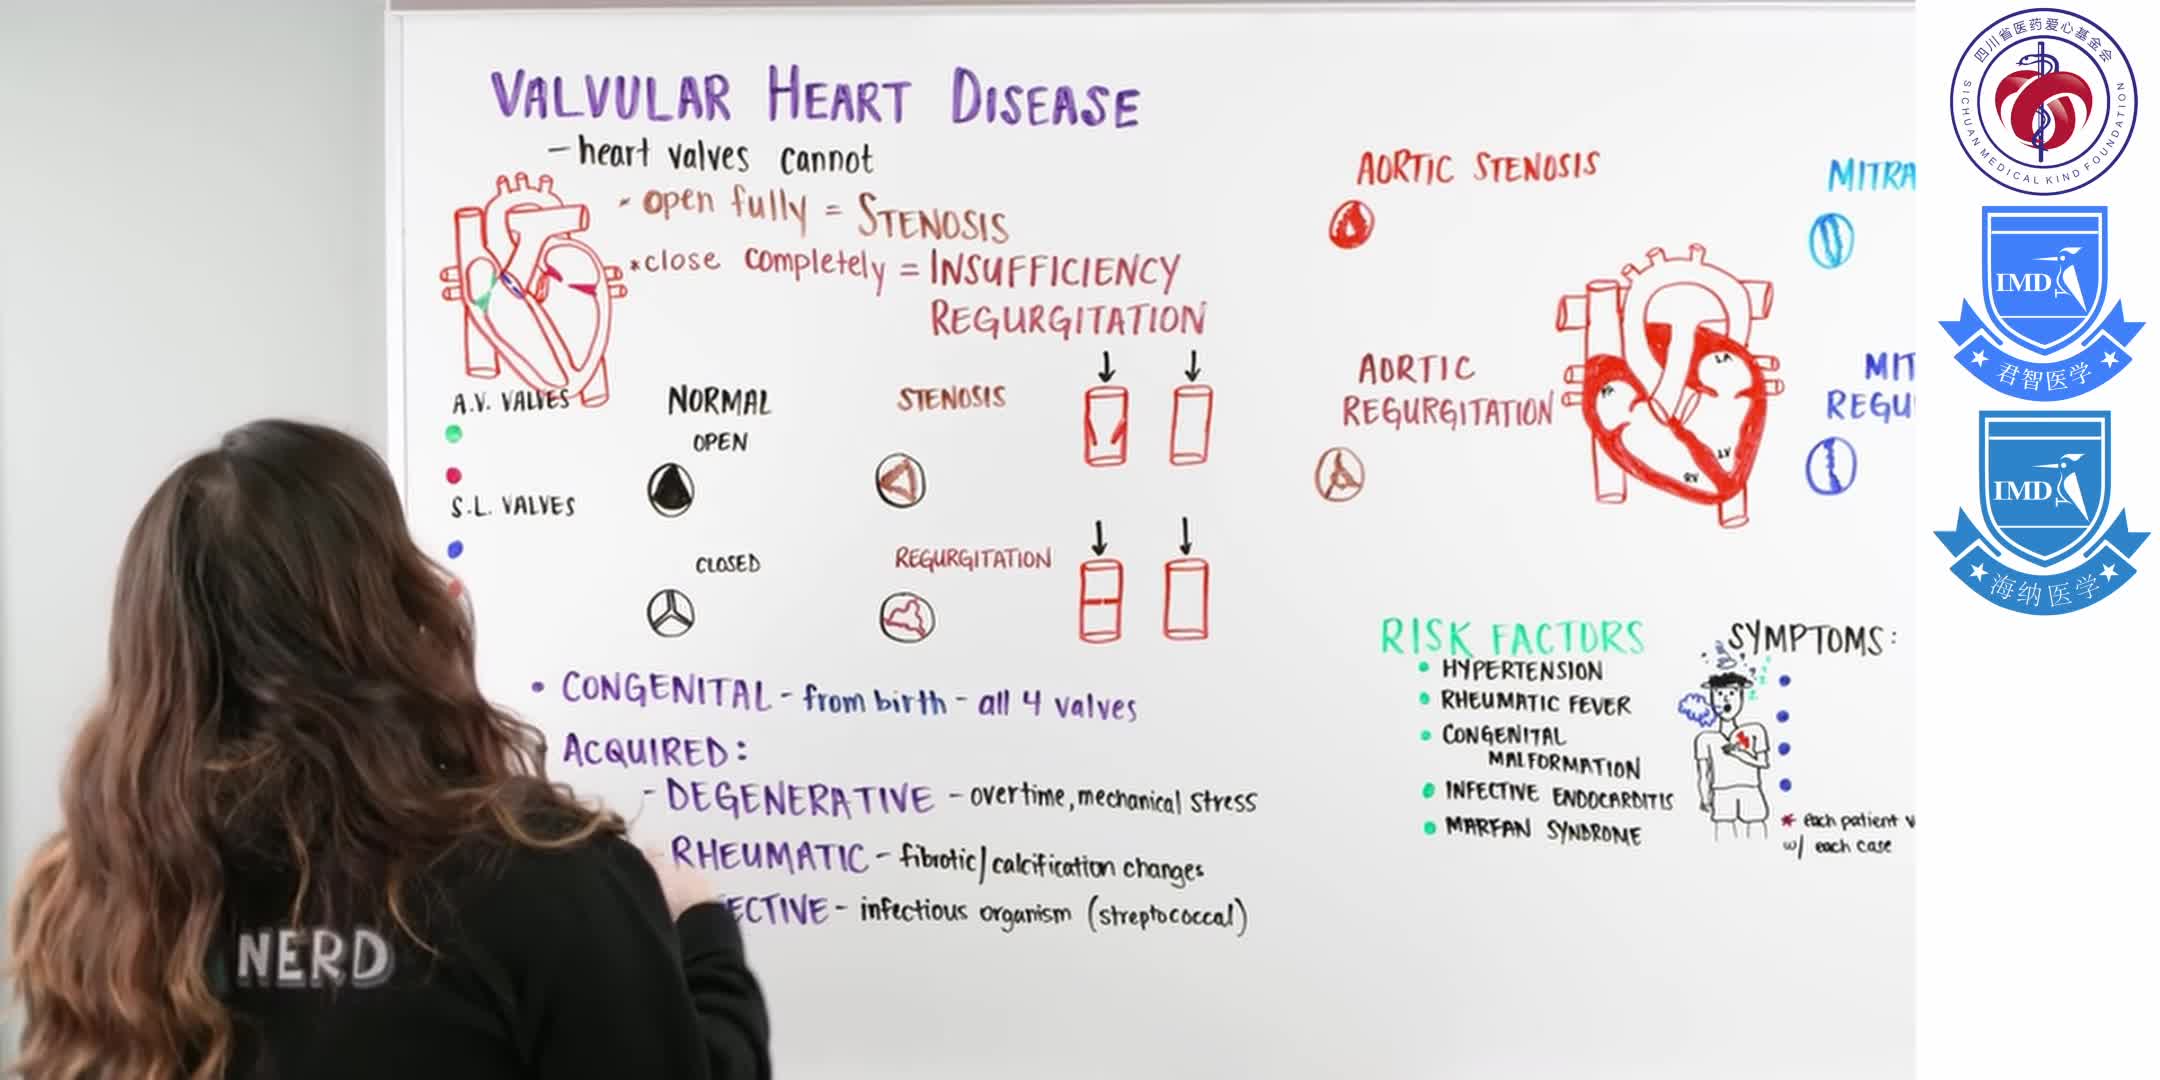 VALVULAR HEART DISEASE
- heart valves cannot
- open fully = STENOSIS
*close completely = INSUFFICIENCY
REGURGITATION
A.V. VALVES
S.L. VALVES
NORMAL
OPEN
CLOSED
STENOSIS
REGURGITATION
• CONGENITAL - from birth - all 4 valves
ACQUIRED:
- DEGENERATIVE - overtime, mechanical stress
RHEUMATIC - fibrotic/calcification changes
ECTIVE - infectious organism (streptococcal)
AORTIC STENOSIS
AORTIC
REGURGITATION
MITRA
MIT
REGU
RA
LA
LV
RV
RISK FACTORS
• HYPERTENSION
• RHEUMATIC FEVER
• CONGENITAL
MALFORMATION
• INFECTIVE ENDOCARDITIS
• MARFAN SYNDROME
SYMPTOMS:
* each patient v
w/ each case
NERD
四川省医药爱心基金会
SICHUAN MEDICAL KIND FOUNDATION
IMD
君智医学
IMD
海纳医学